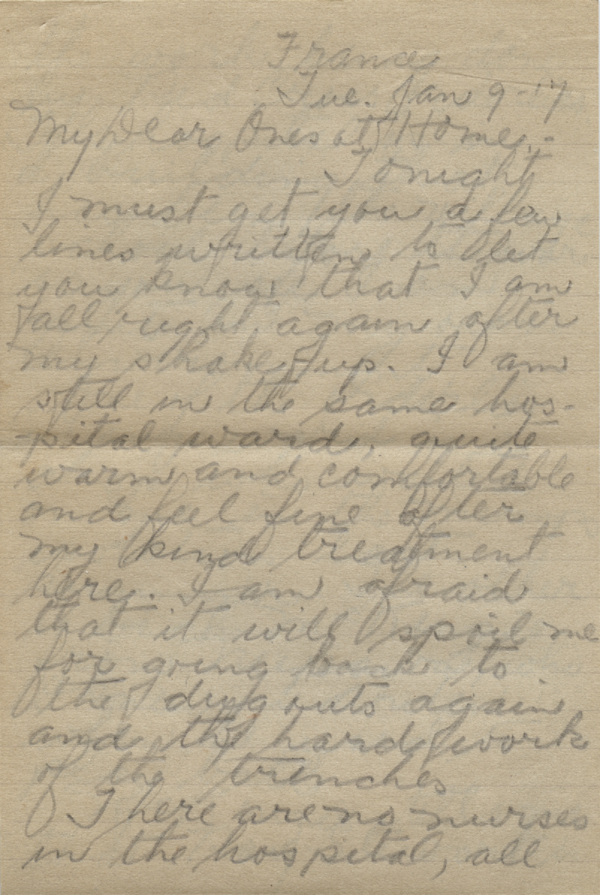 France
Tue. Jan 9-17
My Dear Ones at Home,-
Tonight
I must get you a few
lines written to let
you know that I am
all right again after
my shake up. I am
still in the same hos-
-pital ward, quite
warm and comfortable
and feel fine after
my kind treatment
here. I am afraid
that it will spoil me
for going back to
the dug outs again
and the hard work
of the trenches
There are no nurses
in the hospital, all